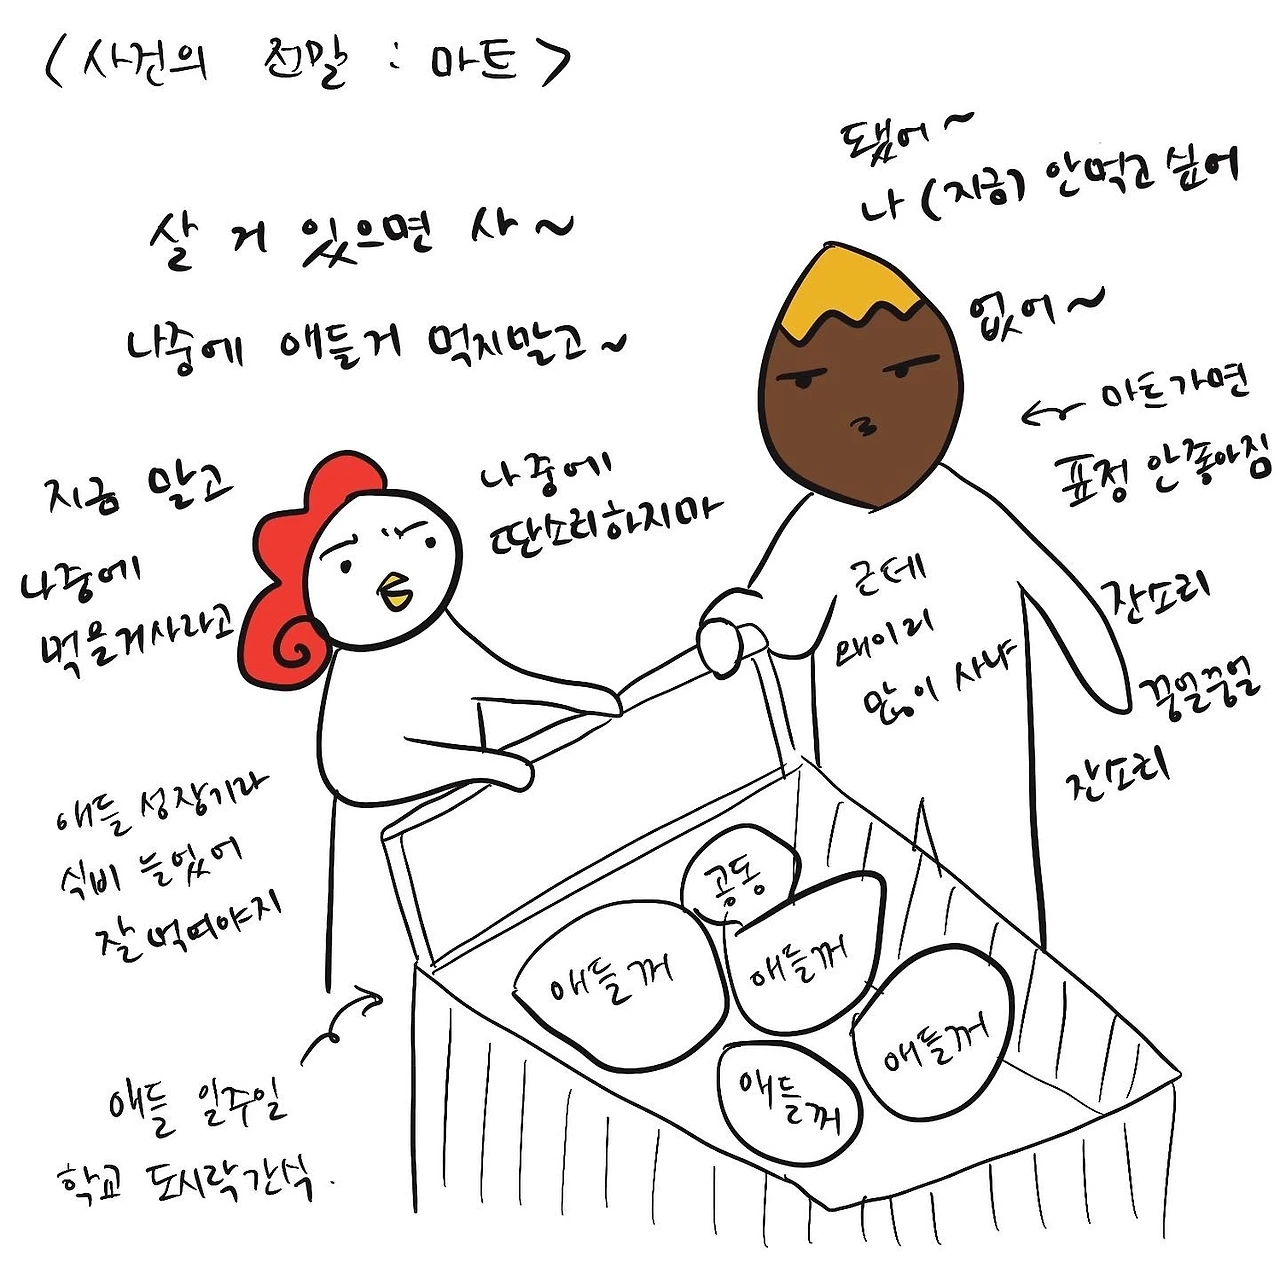 <사건의 전말 : 마트>
됐어~
나 (지금) 안먹고싶어
살 거 있으면 사~
나중에 애들거 먹지말고~
없어~
← 마트가면
표정 안좋아짐
지금 말고
나중에
먹을거사라고
나중에
딴소리하지마
근데
왜이리
많이 사냐
잔소리
꿍얼꿍얼
잔소리
애들 성장기라
식비 늘었어
잘 먹여야지
공동
애들꺼
애들꺼
애들꺼
애들
꺼
애들 일주일
학교 도시락간식.